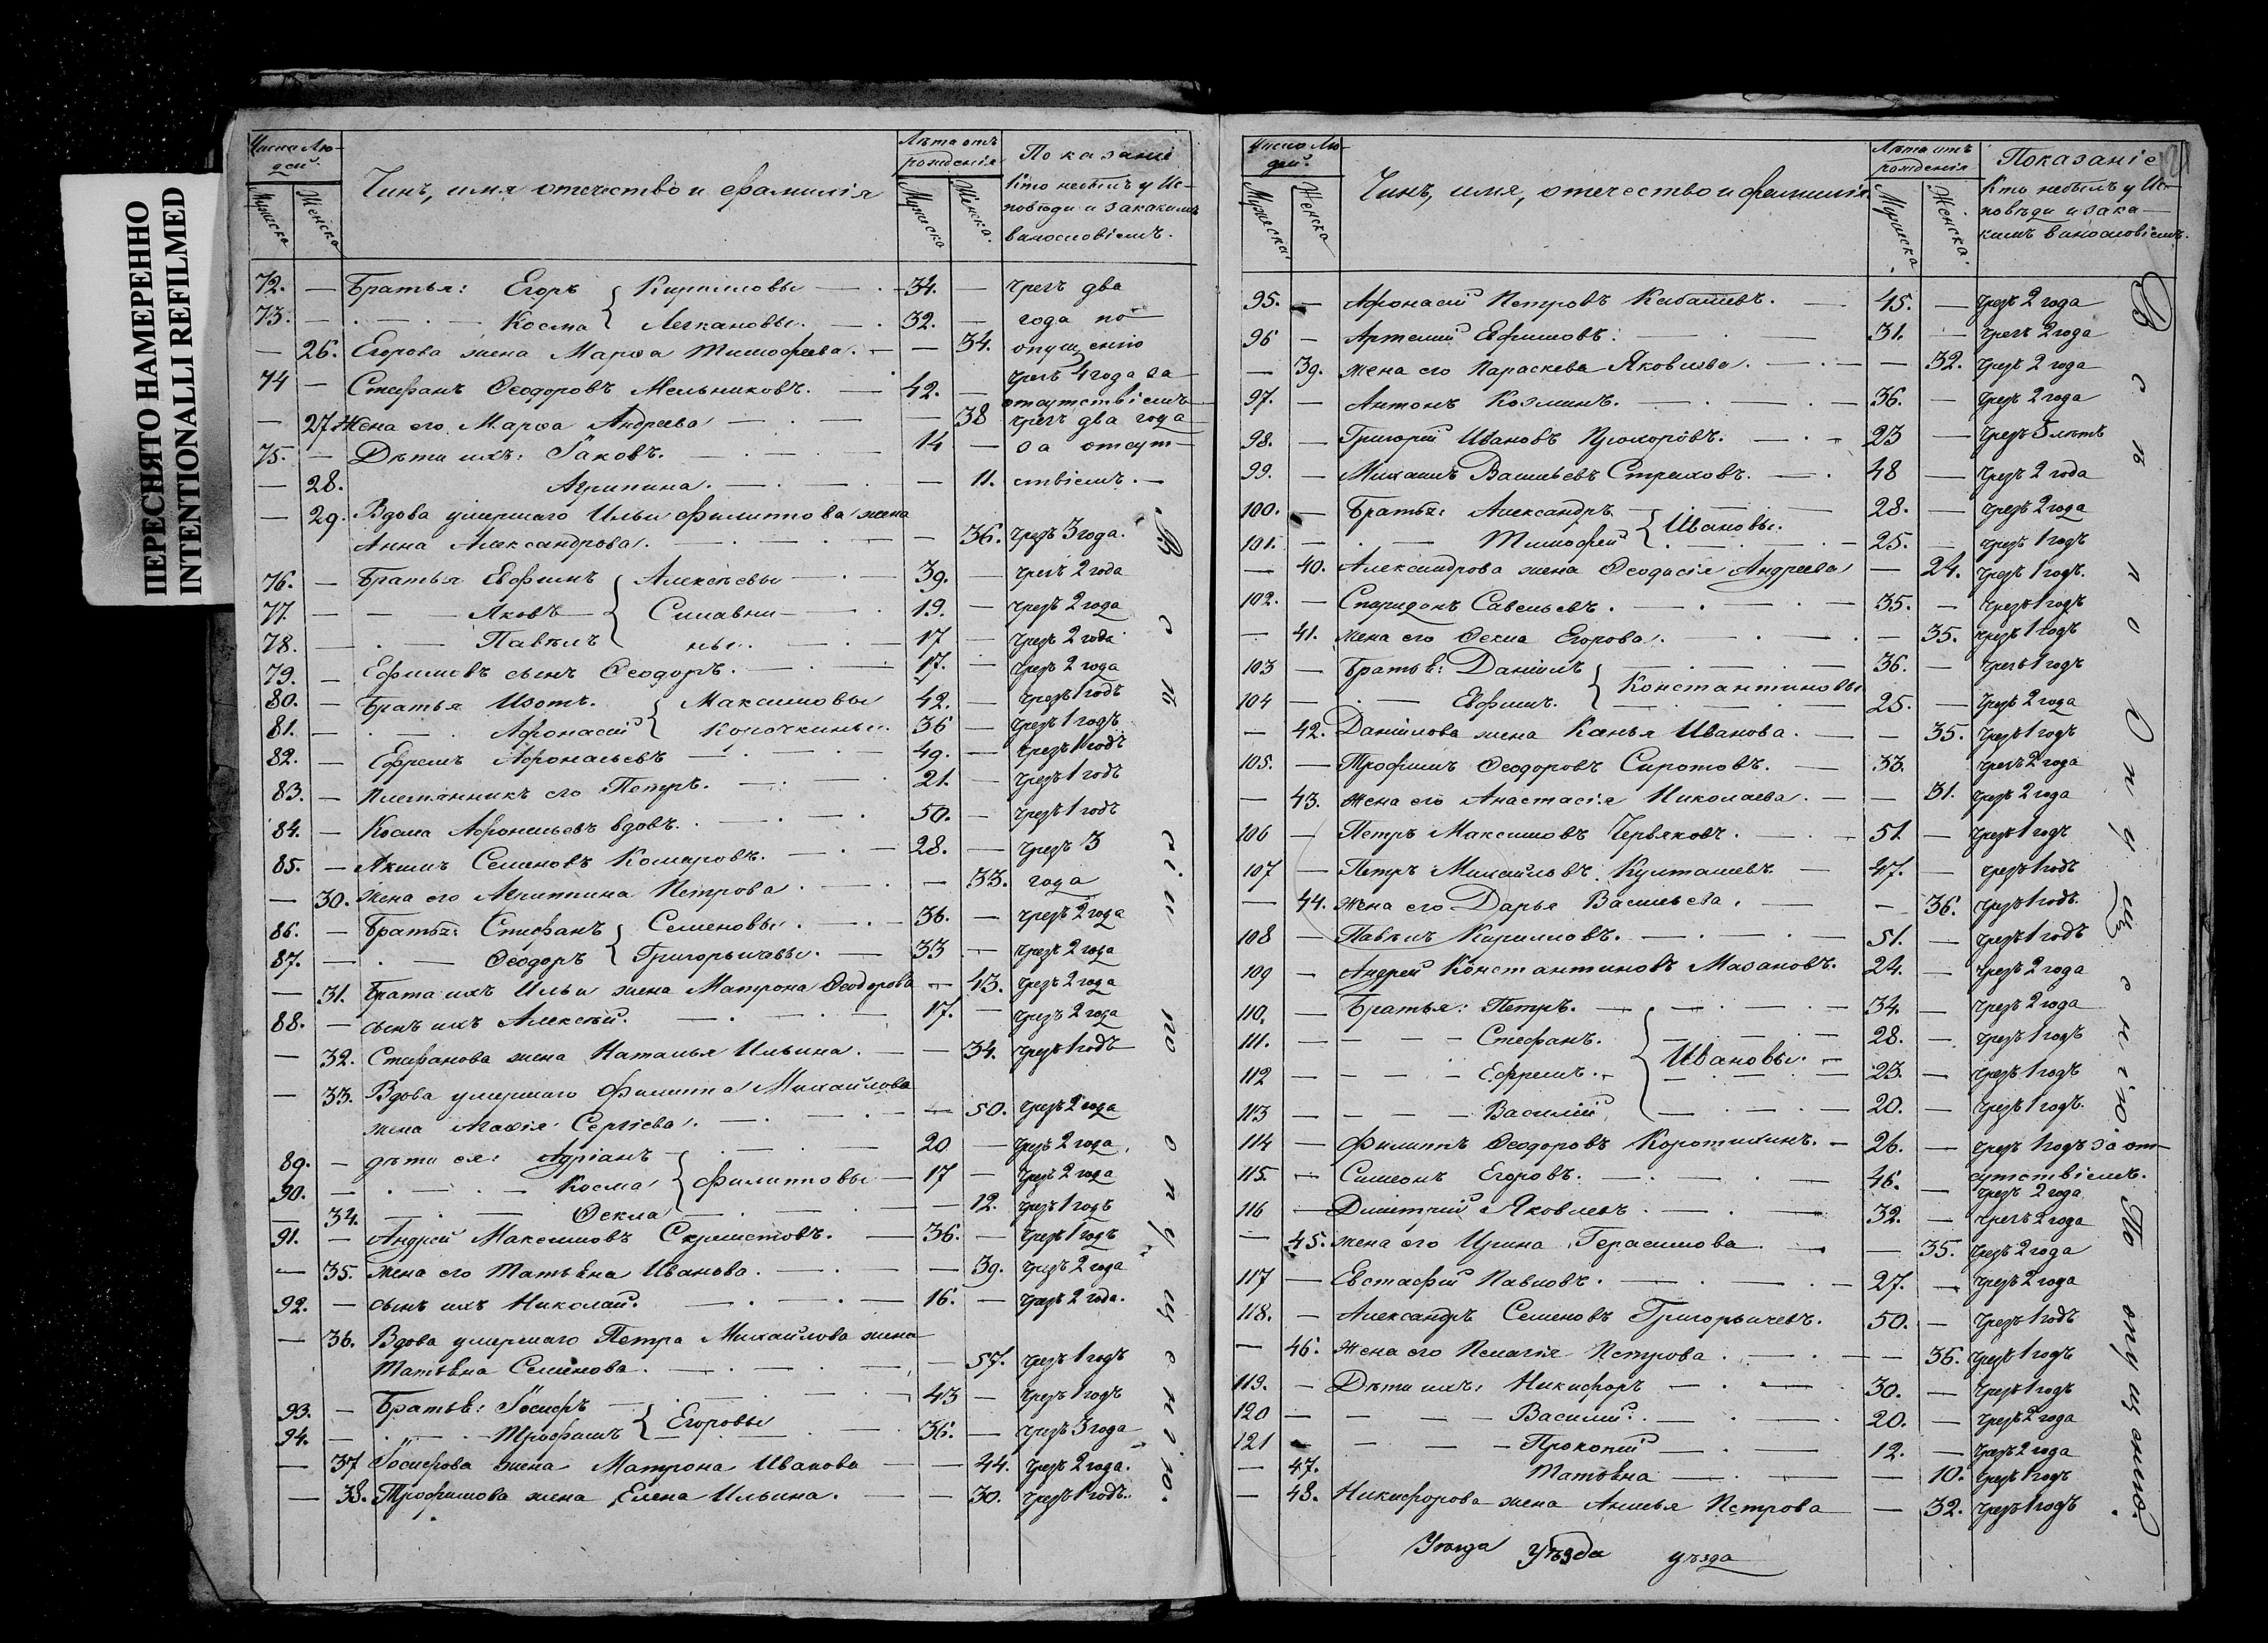 ПЕРЕСНЯТО НАМЕРЕННО
INTENTIONALLI REFILMED
Число Лю-
дей.
Мужеска
Женска
Чинъ, имя отечество и фамилія
Лѣта отъ
рожденія
Мужеска
Женска.
Показаніе
Кто небылъ у Ис-
повѣди и закакимъ
винословіемъ.
72. — Братья: Егоръ { Кириловы — 34. — чрезъ два
73. — Косма { Легкановы. — 32. — года по
— 26. Егорова жена Марѳа Тимоѳеева. — — 34. опущенію
74 — Стефанъ Ѳеодоровъ Мельниковъ. — 42. — чрезъ 4 года за
отсутствіемъ
— 27 Жена его Марѳа Андреева — — 38 чрезъ два года
75. — Дѣти ихъ: Іаковъ. — 14 — за отсут-
— 28. Агрипина. — — 11. ствіемъ. —
— 29. Вдова умершаго Ильи Филиппова жена
Анна Александрова. — — 36. чрезъ 3 года.
76. — Братья Евфимъ { Алексѣевы — 39. — чрезъ 2 года
77. — Яковъ { Силавки — 19. — чрезъ 2 года
78. — Павелъ { ны. — 17 — чрезъ 2 года
79. — Ефимовъ сынъ Ѳеодоръ. — 17. — чрезъ 2 года
80. — Братья Изотъ. { Максимовы 42. — чрезъ 1 годъ
81. — Афонасій { Колочкины. 36 — чрезъ 1 годъ
82. — Ефремъ Афонасьевъ — 49. — чрезъ 1 годъ
83. — Племянникъ его Петръ. — 21. — чрезъ 1 годъ
84. — Косма Афонасьевъ вдовъ. — 50. — чрезъ 1 годъ
85. — Акимъ Семеновъ Комаровъ. — 28. — чрезъ 3
— 30. Жена его Агриппина Петрова. — — 33. года
86. — Братья: Стефанъ { Семеновы. — 36. — чрезъ 2 года
87. — Ѳеодоръ { Григорьичевы. — 33 — чрезъ 2 года
— 31. Брата ихъ Ильи жена Матрона Ѳеодорова — 43. чрезъ 2 года
88. — сынъ ихъ Алексѣй. — 17. — чрезъ 2 года
— 32. Стефанова жена Наталья Ильина. — — 34. чрезъ 1 годъ
— 33. Вдова умершаго Филиппа Михайлова
жена Агафія Сергіева. — — 50. чрезъ 2 года
89. — дѣти ея: Адріанъ { — 20 — чрезъ 2 года
90. — Косма { Филипповы — 17 — чрезъ 2 года
— 34. Ѳекла — — 12. чрезъ 1 годъ
91. — Андрей Максимовъ — 36. — чрезъ 1 годъ
— 35. Жена его Татьяна Иванова. — — 39. чрезъ 2 года
92. — сынъ ихъ Николай. — 16. — чрезъ 2 года.
— 36. Вдова умершаго Петра Михайлова жена
Татьяна Семенова. — — 57. чрезъ 1 годъ
93. — Братья: Іосифъ { — 43 — чрезъ 1 годъ
94. — Трофимъ { Егоровы 36. — чрезъ 3 года
— 37 Іосифова жена Матрона Иванова — — 44. чрезъ 2 года.
— 38. Трофимова жена Елена Ильина. — — 30. чрезъ 1 годъ.
Всѣ сіи по опущенію.
Число Лю-
дей.
Мужеска.
Женска
Чинъ, имя, отечество и фамилія.
Лѣта отъ
рожденія
Мужеска
Женска.
Показаніе
Кто небылъ у Ис-
повѣди и зака-
кимъ винословіемъ.
95. — Афонасій Петровъ Кабашевъ. — 45. — чрезъ 2 года
96 — Артемій Ефимовъ. — 31. — чрезъ 2 года
— 39. жена его Параскева Яковлева. — — 32. чрезъ 2 года
97. — Антонъ Козминъ. — 36. — чрезъ 2 года
98. — Григорій Ивановъ Прохоровъ. — 23 — чрезъ 5 лѣтъ
99. — Михаилъ Васильевъ Страховъ. — 48 — чрезъ 2 года
100. — Братья: Александръ { — 28. — чрезъ 2 года
101. — Тимофей { Ивановы. 25. — чрезъ 1 годъ
— 40. Александрова жена Ѳеодосія Андреева — 24. чрезъ 1 годъ.
102. — Спиридонъ Савельевъ. — 35. — чрезъ 1 годъ
— 41. жена его Ѳекла Егорова. — — 35. чрезъ 1 годъ
103 — Братья: Даніилъ { — 36. — чрезъ 1 годъ
104 — Евфимъ. { Константиновы 25. — чрезъ 2 года
— 42. Даніилова жена Ксенья Иванова. — — 35. чрезъ 1 годъ
105. — Трофимъ Ѳеодоровъ Сиротовъ. — 33. чрезъ 2 года
— 43. жена его Анастасія Николаева. — — 31. чрезъ 2 года
106 — Петръ Максимовъ Червяковъ. — 51. — чрезъ 1 годъ
107 — Петръ Михайловъ Култашевъ — 47. — чрезъ 1 годъ
— 44. жена его Дарья Васильева. — — 36. чрезъ 1 годъ
108 — Павелъ Кириловъ. — 51. — чрезъ 1 годъ
109 — Андрей Константиновъ Мазановъ. 24. — чрезъ 2 года
110. — Братья: Петръ. — 34. — чрезъ 2 года
111. — Стефанъ. { — 28. — чрезъ 1 годъ
112 — Ефремъ. { Ивановы. — 23. — чрезъ 1 годъ
113 — Василій { — 20. — чрезъ 1 годъ.
114 — Филиппъ Ѳеодоровъ Коротихинъ. — 26. — чрезъ 1 годъ за от-
сутствіемъ.
115. — Симеонъ Егоровъ. — 46. — чрезъ 2 года
116 — Димитрій Яковлевъ. — 32. — чрезъ 2 года
— 45. жена его Ирина Герасимова — — 35. чрезъ 2 года
117 — Евстафій Павловъ. — 27. — чрезъ 2 года
118. — Александръ Семеновъ Григорьичевъ. 50. — чрезъ 1 годъ
— 46. Жена его Пелагія Петрова. — — 36. чрезъ 1 годъ
119. — Дѣти ихъ: Никифоръ — 30. — чрезъ 1 годъ
120 — Василій. — 20. — чрезъ 2 года
121 — Прокопій — 12. — чрезъ 2 года
— 47. Татьяна — — 10. чрезъ 1 годъ
— 48. Никифорова жена Анисья Петрова — 32. чрезъ 1 годъ
Всѣ по опущенію.
По опущенію.
Уѣзда Уѣзда уѣзда